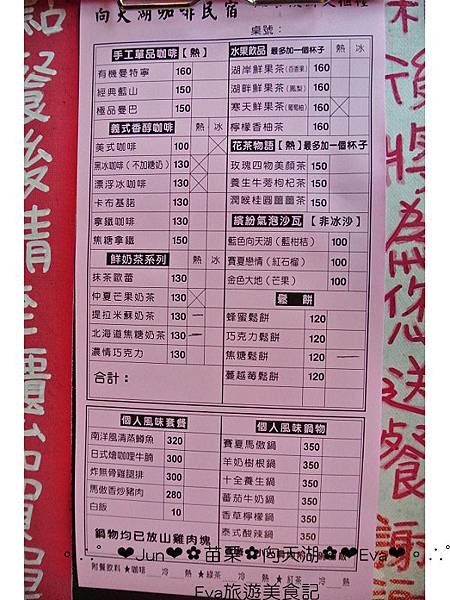 向天湖咖啡民宿
桌號：
手工單品咖啡【熱】
有機曼特寧 160
經典藍山 160
極品曼巴 150
義式香醇咖啡 熱 冰
美式咖啡 100
黑冰咖啡（不加糖奶） 130
漂浮冰咖啡 130
卡布基諾 130
拿鐵咖啡 130
焦糖拿鐵 150
鮮奶茶系列 熱 冰
抹茶歐蕾 130
仲夏芒果奶茶 130
提拉米蘇奶茶 130
北海道焦糖奶茶 130
濃情巧克力 130
合計：
水果飲品 最多加一個杯子 熱 冰
湖岸鮮果茶（百香果） 160
湖畔鮮果茶（鳳梨） 160
寒天鮮果茶（葡萄柚） 160
檸檬香柚茶 160
花茶物語【熱】最多加一個杯子
玫瑰四物美顏茶 150
養生牛蒡枸杞茶 150
潤喉桂圓薑薑茶 150
繽紛氣泡沙瓦【非冰沙】
藍色向天湖（藍柑桔） 100
賽夏戀情（紅石榴） 100
金色大地（芒果） 100
鬆餅
蜂蜜鬆餅 120
巧克力鬆餅 120
焦糖鬆餅 120
蔓越莓鬆餅 120
個人風味套餐
南洋風清蒸鱒魚 320
日式燴咖哩牛腩 300
炸無骨雞腿排 300
馬傲香炒豬肉 280
白飯 10
鍋物均已放山雞肉塊
個人風味鍋物
賽夏馬傲鍋 350
羊奶樹根鍋 350
十全養生鍋 350
蕃茄牛奶鍋 350
香草檸檬鍋 350
泰式酸辣鍋 350
附餐飲料 ★咖啡 冷 熱 ★綠茶 冷 熱 ★紅茶 冷 熱
點餐後請至櫃
來後將為您送餐 謝
❤Jun❤✿苗栗✿向天湖✿❤Eva❤
Eva旅遊美食記